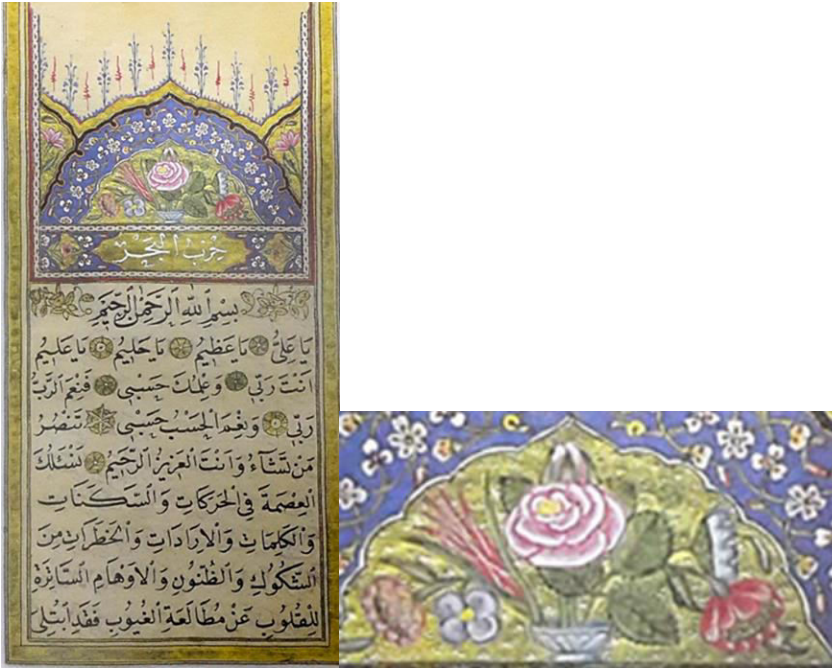 حِزْبُ الْبَحْرْ
بِسْمِ اللّٰهِ الرَّحْمٰنِ الرَّحِيمِ
يَا عَلِىُّ يَا عَظِيمُ يَا حَلِيمُ يَا عَلِيمُ
اَنْتَ رَبِّى وَعِلْمُكَ حَسْبِى فَنِعْمَ الرَّبُّ
رَبِّى وَنِعْمَ الْحَسْبُ حَسْبِى تَنْصُرُ
مَنْ تَشَآءُ وَاَنْتَ الْعَزِيزُ الرَّحِيمُ نَسْئَلُكَ
الْعِصْمَةَ فِى الْحَرَكَاتِ وَالسَّكَنَاتِ
وَالْكَلِمَاتِ وَالْاِرَادَاتِ وَالْخَطَرَاتِ مِنَ
الشُّكُوكِ وَالظُّنُونِ وَالْاَوْهَامِ السَّاتِرَةِ
لِلْقُلُوبِ عَنْ مُطَالَعَةِ الْغُيُوبِ فَقَدِ ابْتُلِىَ